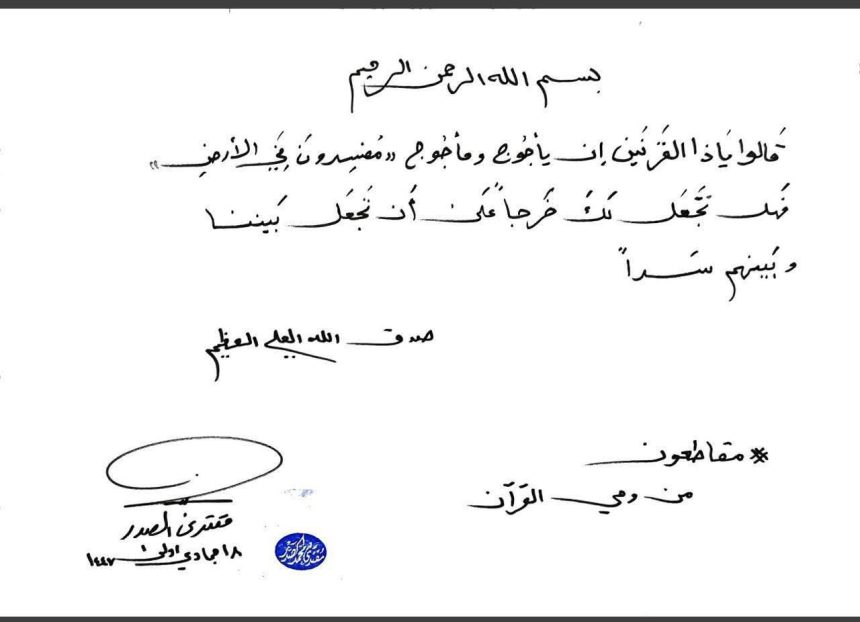 بسم الله الرحمن الرحيم
قَالوا يَاذا القَرنَين إن يأجُوج ومأجُوج «مُفسِدونَ فِي الأرضِ»
فَهل نَجَعَل لَكَ خَرجاً عَلىٰ أَن تَجعَل بَيننا
وبَينهم سَداً
صدق الله العلي العظيم
* مقاطعون
من وحي القرآن
مقتدى الصدر
١٨ جمادي اولى ١٤٤٧